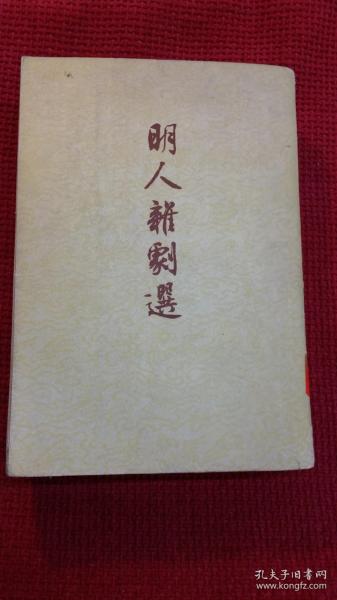 明人雜劇選
孔夫子旧书网
www.kongfz.com